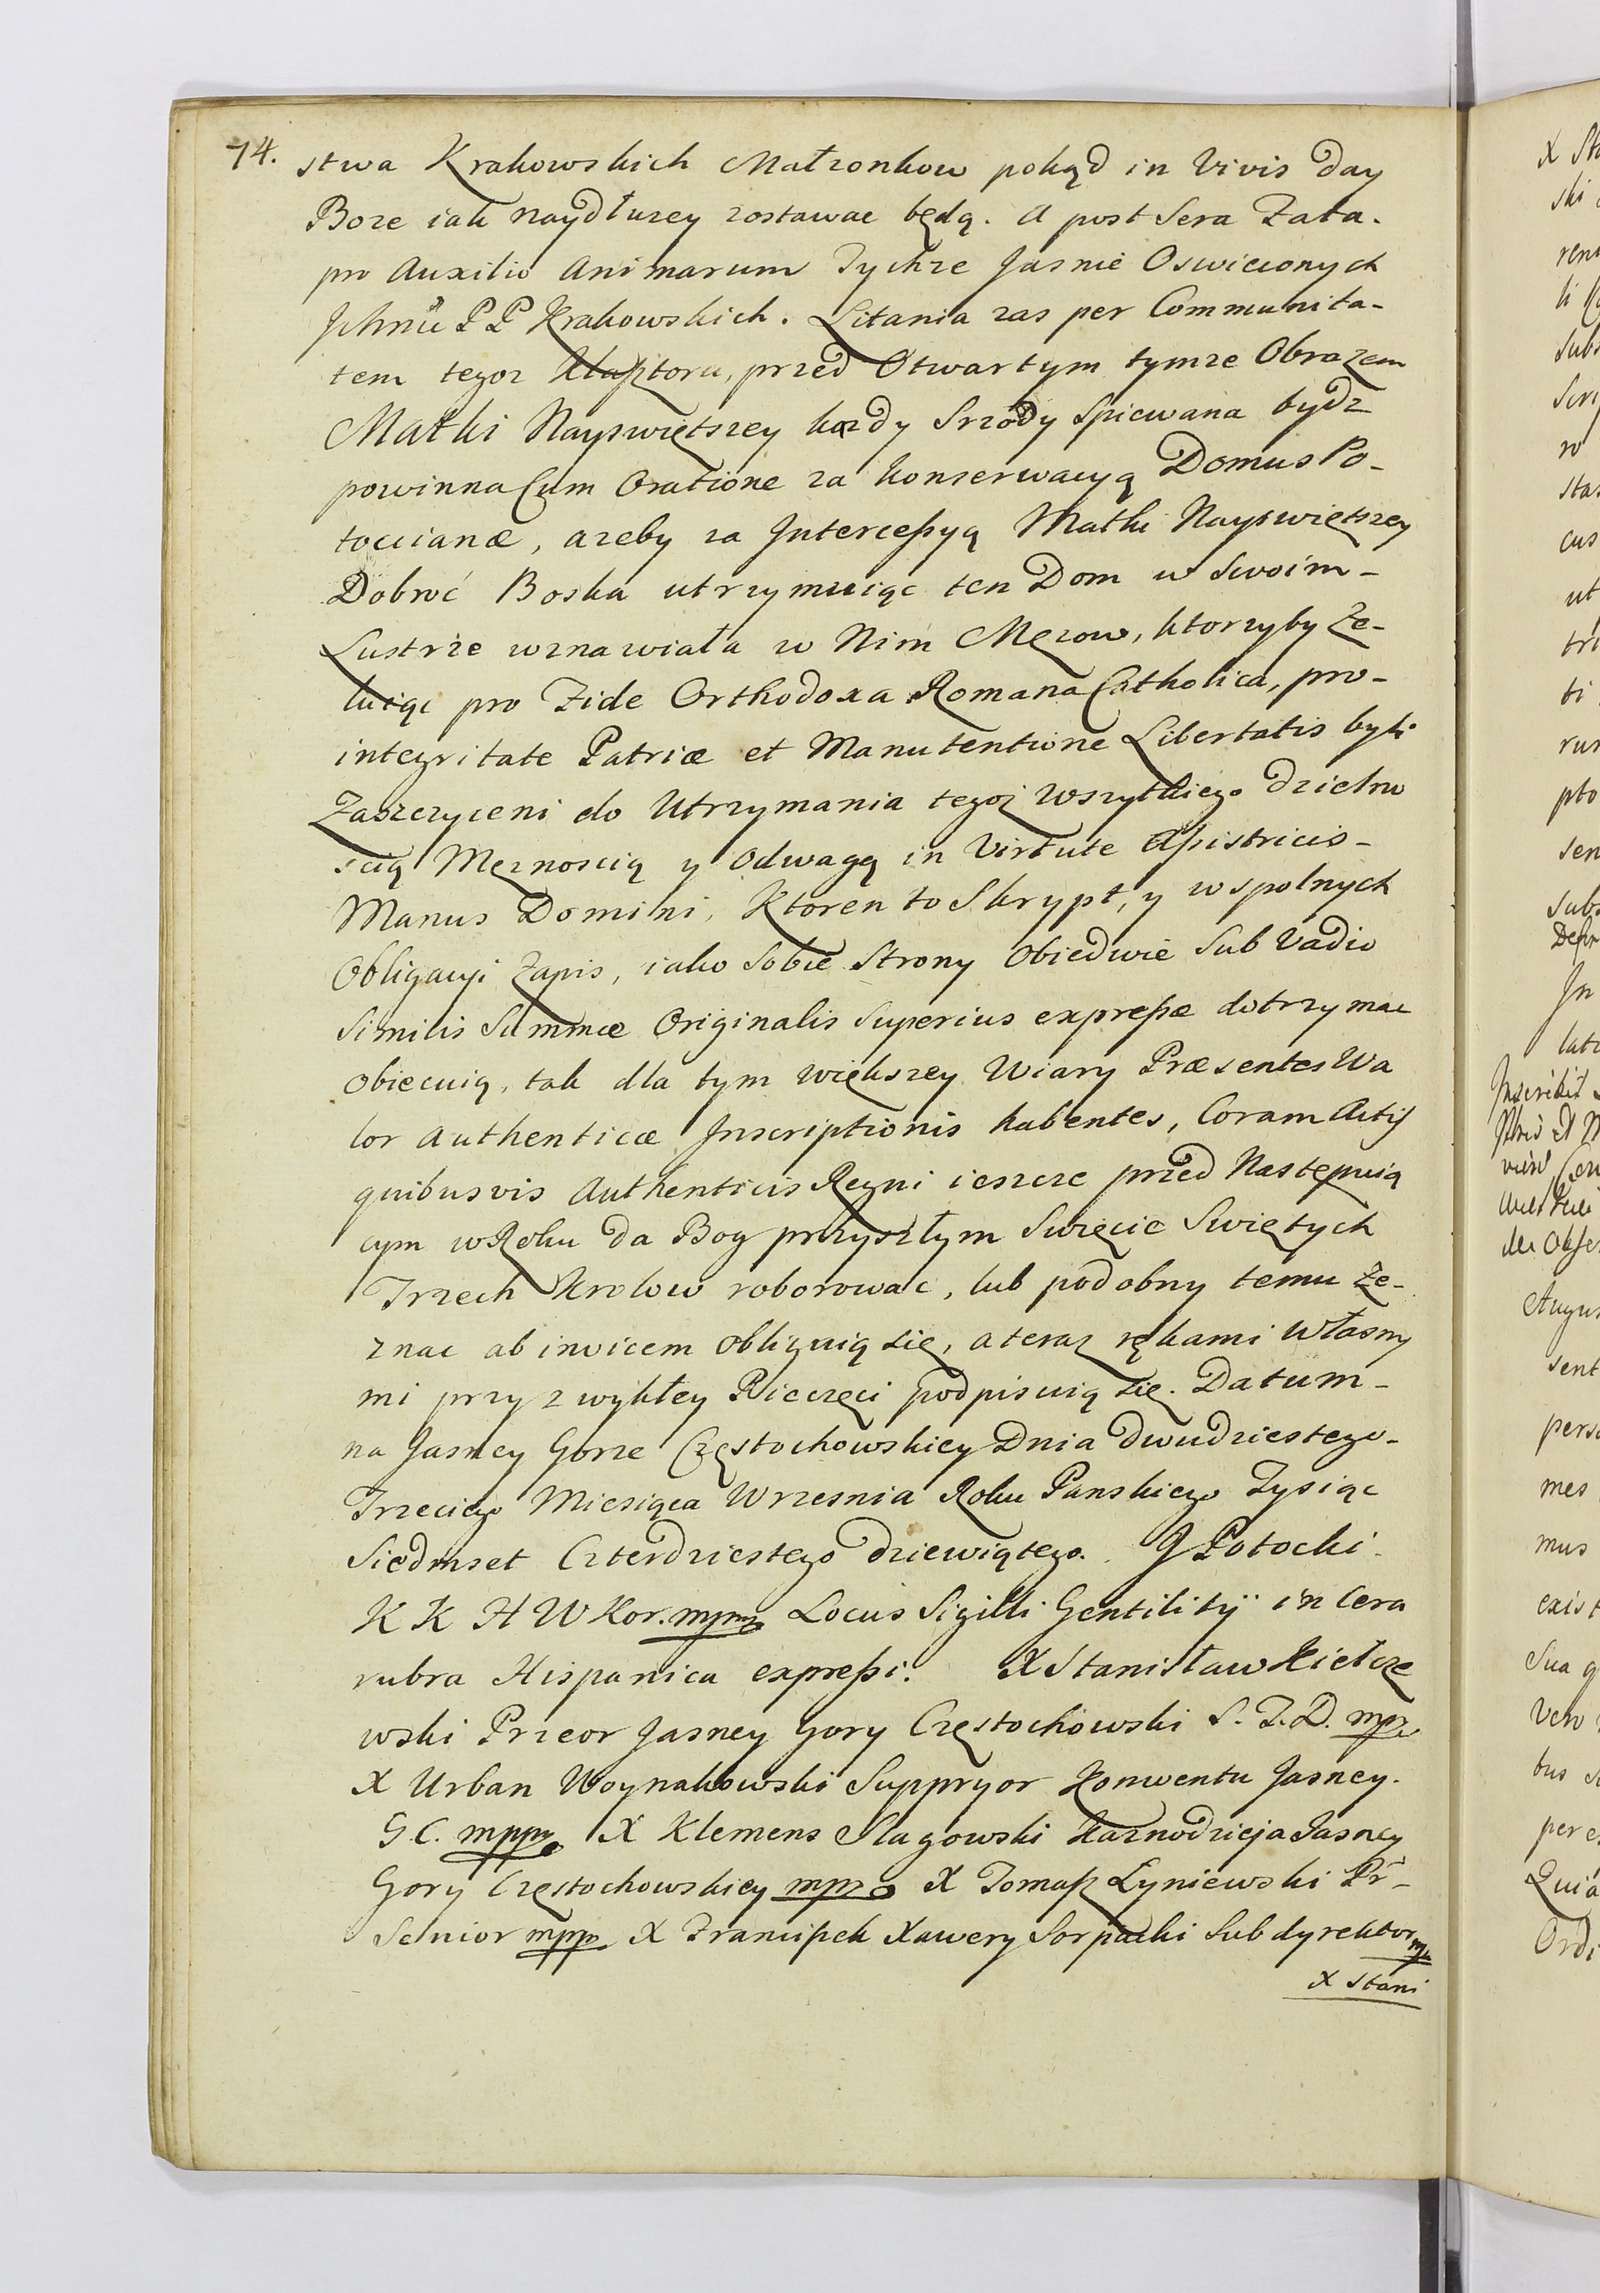 74.
stwa Krakowskich Małzonkow pokąd in Vivis day
Boze iak naydłuzey zostawac będą. A post Sera Fata.
pro Auxilio Animarum Tychze Jasnie Oswieconych
Jchmċi PP Krakowskich. Litania zas per Communita-
tem tegoz Klasztoru, przed Otwartym tymze Obrazem
Matki Nayswiętszey kazdy Srzody spiewana bydz
powinna Cum Oratione za konserwacyą Domus Po-
toccianæ, azeby za Jntercessyą Matki Nayswiętszey
Dobroć Boska utrzymuiąc ten Dom w Swoim-
Lustrze wznawiała w Nim Męzow, ktorzyby Ze-
luiąc pro Fide Orthodoxa Romana Catholica, pro-
integritate Patriæ et Manutentione Libertatis byli
Zaszczyceni do Utrzymania tegoz Wszytkiego dzielno
scią Męznoscią y Odwagą in Virtute Assistricis-
Manus Domini, Ktoren to Skrypt, y wspolnych
Obligacyi Zapis, iako Sobie Strony Obiedwie Sub Vadio
Similis Summæ Originalis Superius expressæ dotrzymac
Obiecuią, tak dla tym większey Wiary Præsentes Va
lor Authenticæ Jnscriptionis habentes, Coram Actis
quibusvis Authenticis Regni ieszcze przed Następuią
cym w Roku da Bog przyszłym Swięcie Swiętych
Trzech Krolow roborowac, lub podobny temu Ze-
znac ab invicem Obliguią się, a teraz rękami Własny
mi przy zwykłey Pieczęci podpisuią się. Datum-
na Jasney Gorze Częstochowskiey Dnia dwudziestego-
Trzeciego Miesiąca Wrzesnia Roku Panskiego Tysiąc
Siedmset Czterdziestego dziewiątego. J Potocki.
K K H W Kor. mpp Locus Sigilli Gentilitÿ in Cera
rubra Hispanica expressi. X Stanisław Kiełcze
wski Przeor Jasney Gory Częstochowski S. T. D. mpp
X Urban Woynakowski Suppryor Konwentu Jasney.
G C. mppp X Klemens Slagowski Kaznodzieja Jasney
Gory Częstochowskiey mpp X Tomasz Łyniewski Pr-
Senior mpp X Franciszek Xawery Sorpacki Subdyrektor mp
X Stani